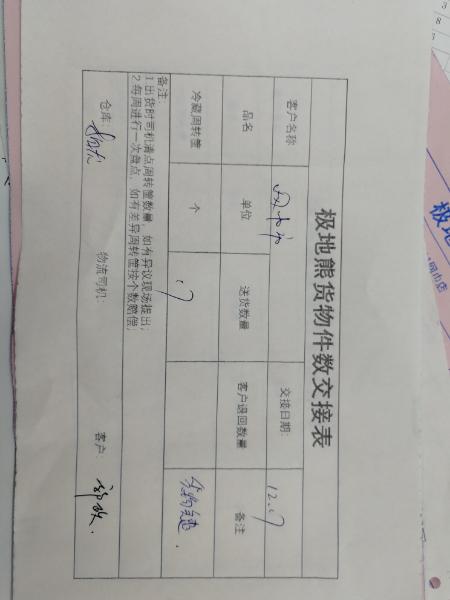 极地熊货物件数交接表
客户名称 交接日期: 12.17
品名 单位 送货数量 客户退回数量 备注
冷藏周转筐 个 17 货物完整.
备注:
1.出货时司机清点周转筐数量,如有异议现场提出;
2.每周进行一次盘点,如有差异周转筐按个数赔偿;
仓库: 物流司机: 客户:
极地